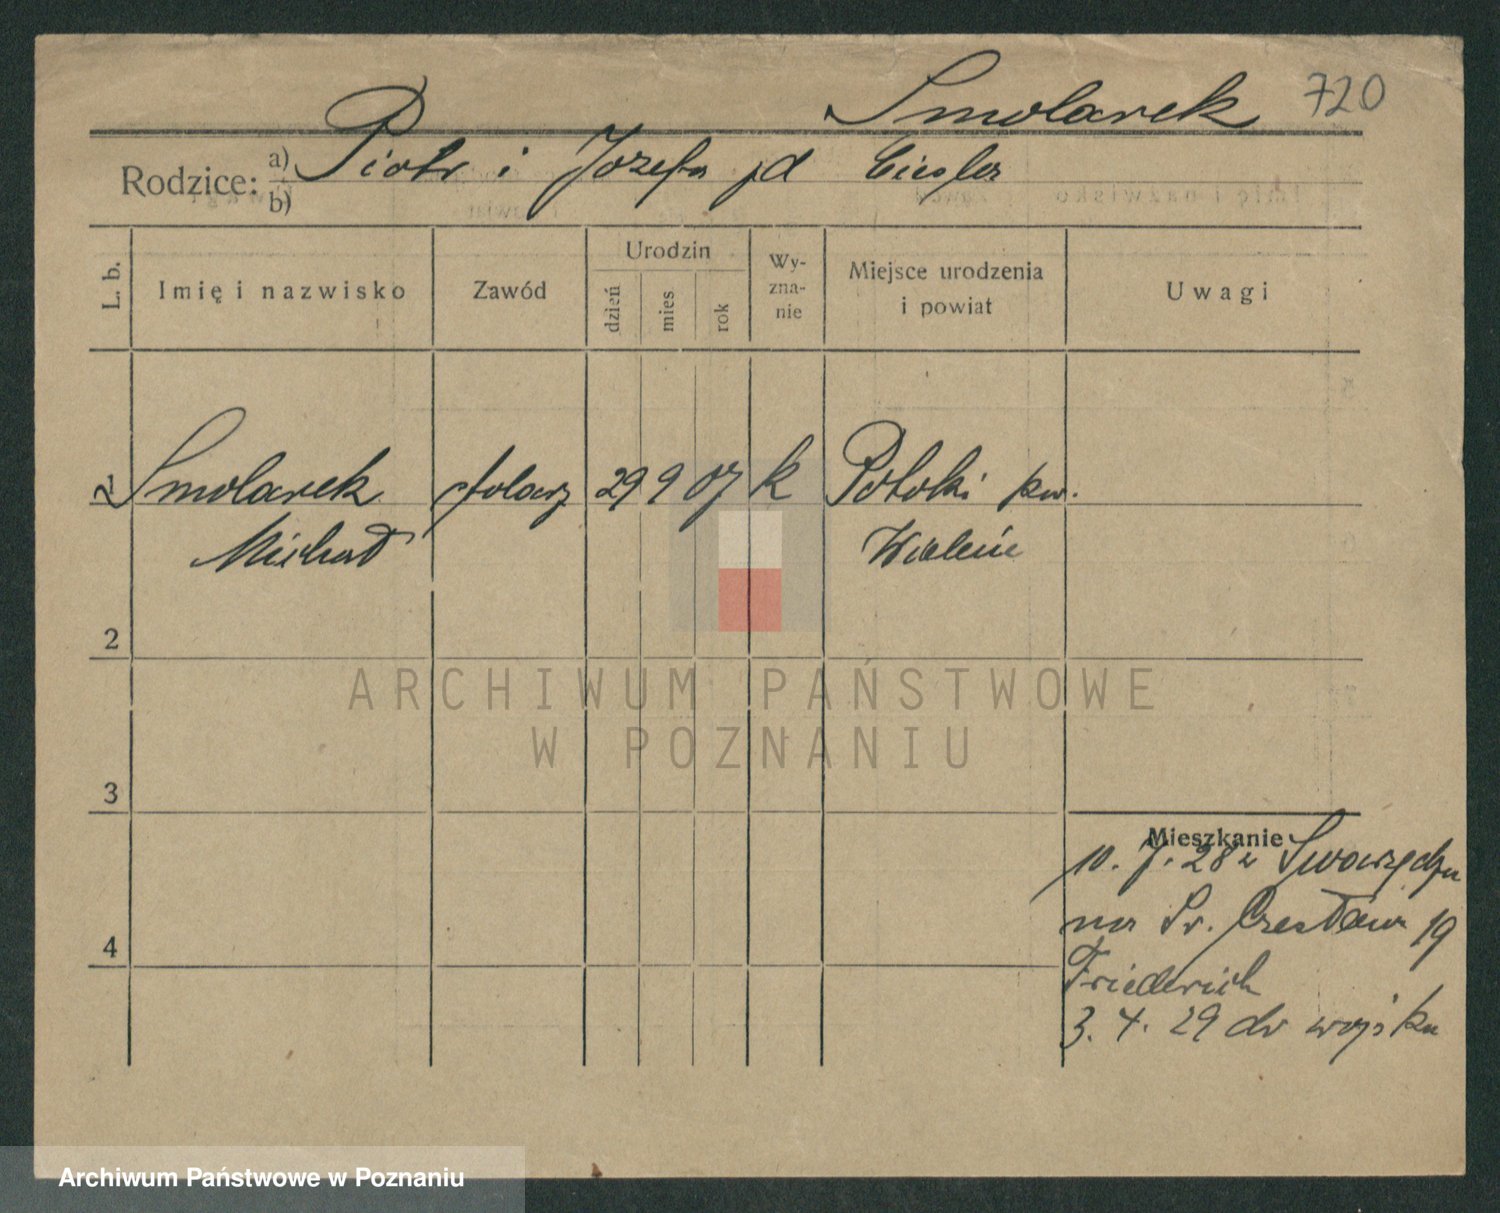 Smolarek 720
Rodzice: a) Piotr i Józefa zd Cieśla
b)
L. b. Imię i nazwisko Zawód Urodzin dzień mies rok Wy-zna-nie Miejsce urodzenia i powiat Uwagi
1 Smolarek stolarz 29 9 07 k Potoki pw.
Michał Wieleń
2
3
4
Mieszkanie
10. 7. 28 z Swarzędza
na Św. Czesława 19
Friederich
3. 4. 29 do wojska
ARCHIWUM PAŃSTWOWE
W POZNANIU
Archiwum Państwowe w Poznaniu